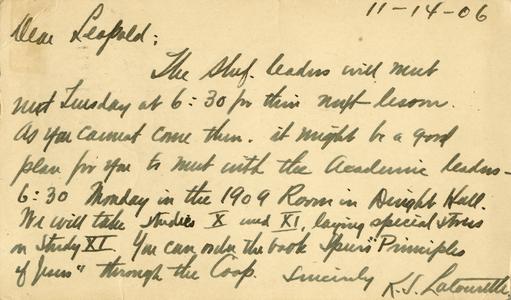 11-14-06
Dear Leopold:
The Shef. leaders will meet
next Tuesday at 6:30 for their next lesson.
As you cannot come then, it might be a good
plan for you to meet with the Academic leaders -
6:30 Monday in the 1909 Room in Dwight Hall.
We will take studies X and XI, laying special stress
on Study XI. You can order the book Speer's "Principles
of Jesus" through the Coop. Sincerely K.S. Latourette.